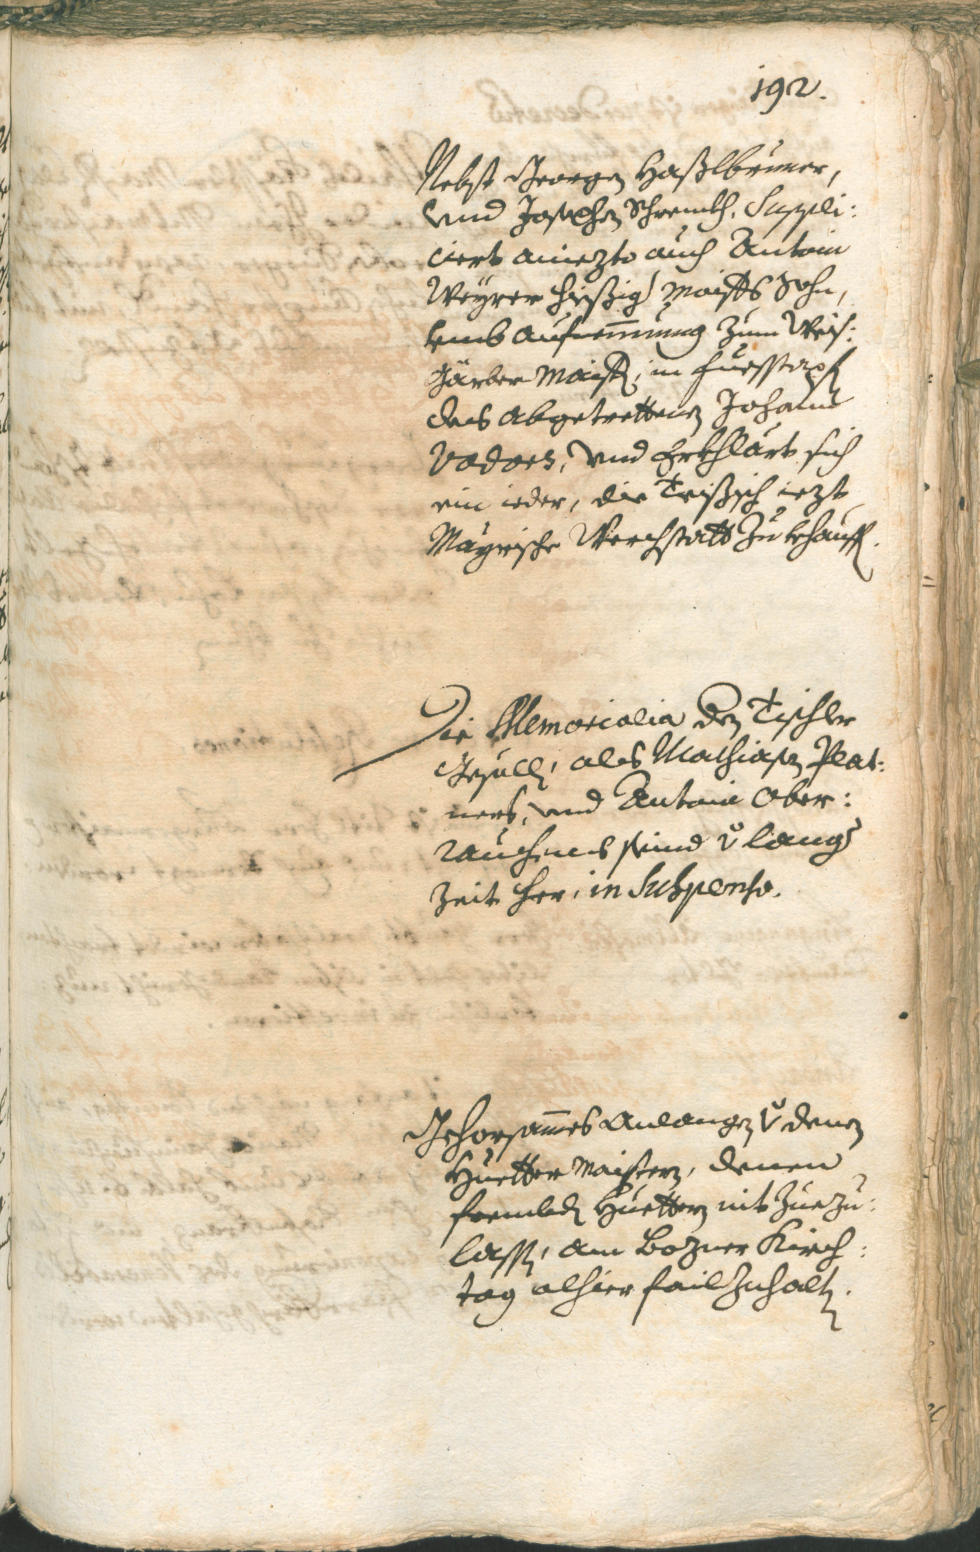 192.
Nebst Georgen Haßlbrunner,
vnd Josephen Schrentl. Suppli:
ciert aniezto auch Antoni
Weyrer hießig Maisters Sohn,
vmb aufnemmung zum Weis:
Gärber Maister, in fuesstapfen
des abgetrettenen Johann
Vadoes, vnd Erkhlärt sich
ein ieder, die iezt
Mayrische Werchstatt zu khauffen.
Die Memorialia der Tischler
Gesellen, als Mathiasen Plat:
ners, vnd Antoni Ober:
rauchens seind v lang
Zeit her, in Suspenso.
Gehorsammes Anlangen v denen
Huetter Maistern, denen
frembden Huettern nit zuezu:
lassen, am Bozner Kirch:
tag alhier fail zuhalten.